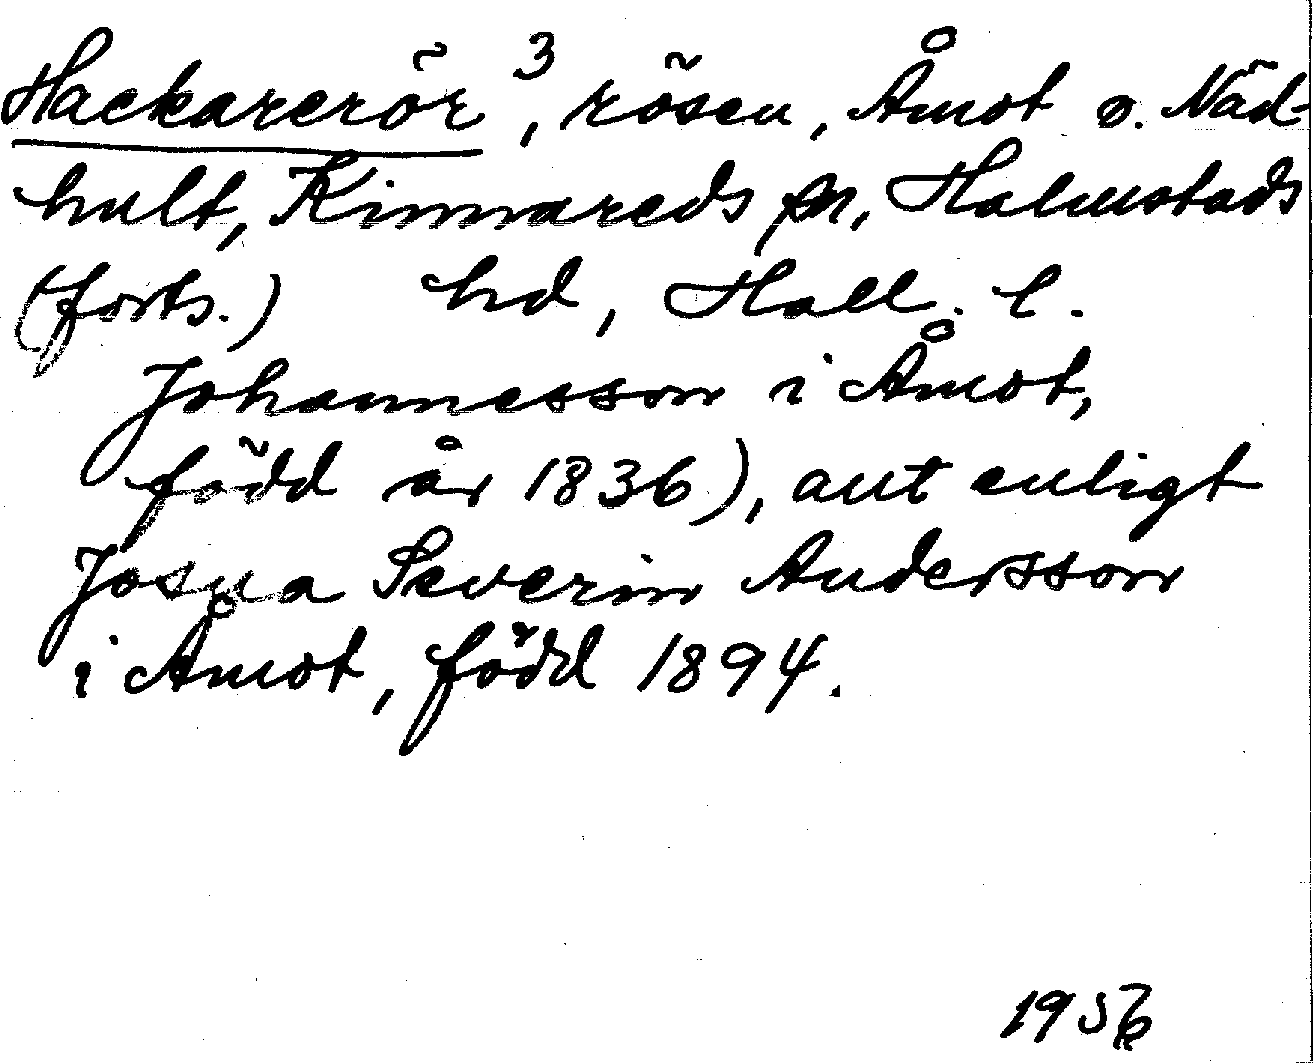 Hackarerör³, rösen, Åmot o. Näd-
hult, Kinnareds sn, Halmstads
(forts.) hd, Hall. l.
Johannesson i Åmot,
född år 1836), ant enligt
Josua Severin Andersson
i Åmot, född 1894.
1956